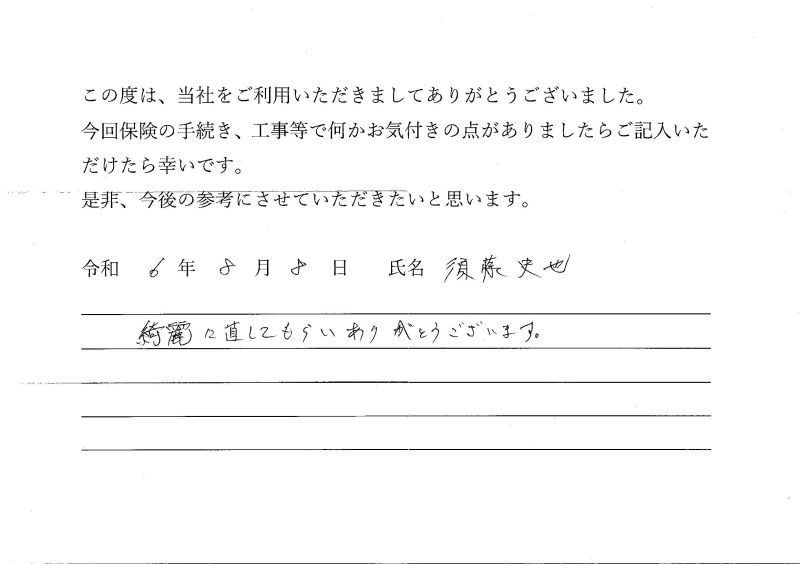 この度は、当社をご利用いただきましてありがとうございました。
今回保険の手続き、工事等で何かお気付きの点がありましたらご記入いた
だけたら幸いです。
是非、今後の参考にさせていただきたいと思います。
令和 6 年 8 月 8 日 氏名 須藤史也
綺麗に直してもらいありがとうございます。